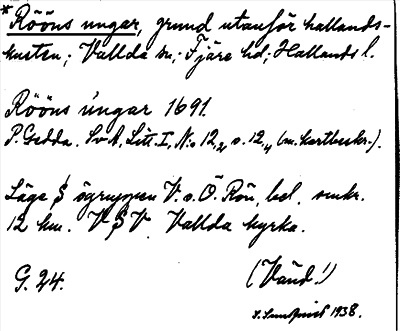 * Rööns ungar, grund utanför hallands-
kusten; Vallda sn; Fjäre hd; Hallands l.
Rööns ungar 1691.
P. Gedda. Sv A, Litt. I, No 12, o. 12, (m. kartbeskr.).
Läge S ögruppen V. o. Ö. Rön, bel. omkr.
12 km. V S V. Vallda kyrka.
G. 24.
(Vänd!)
1938.